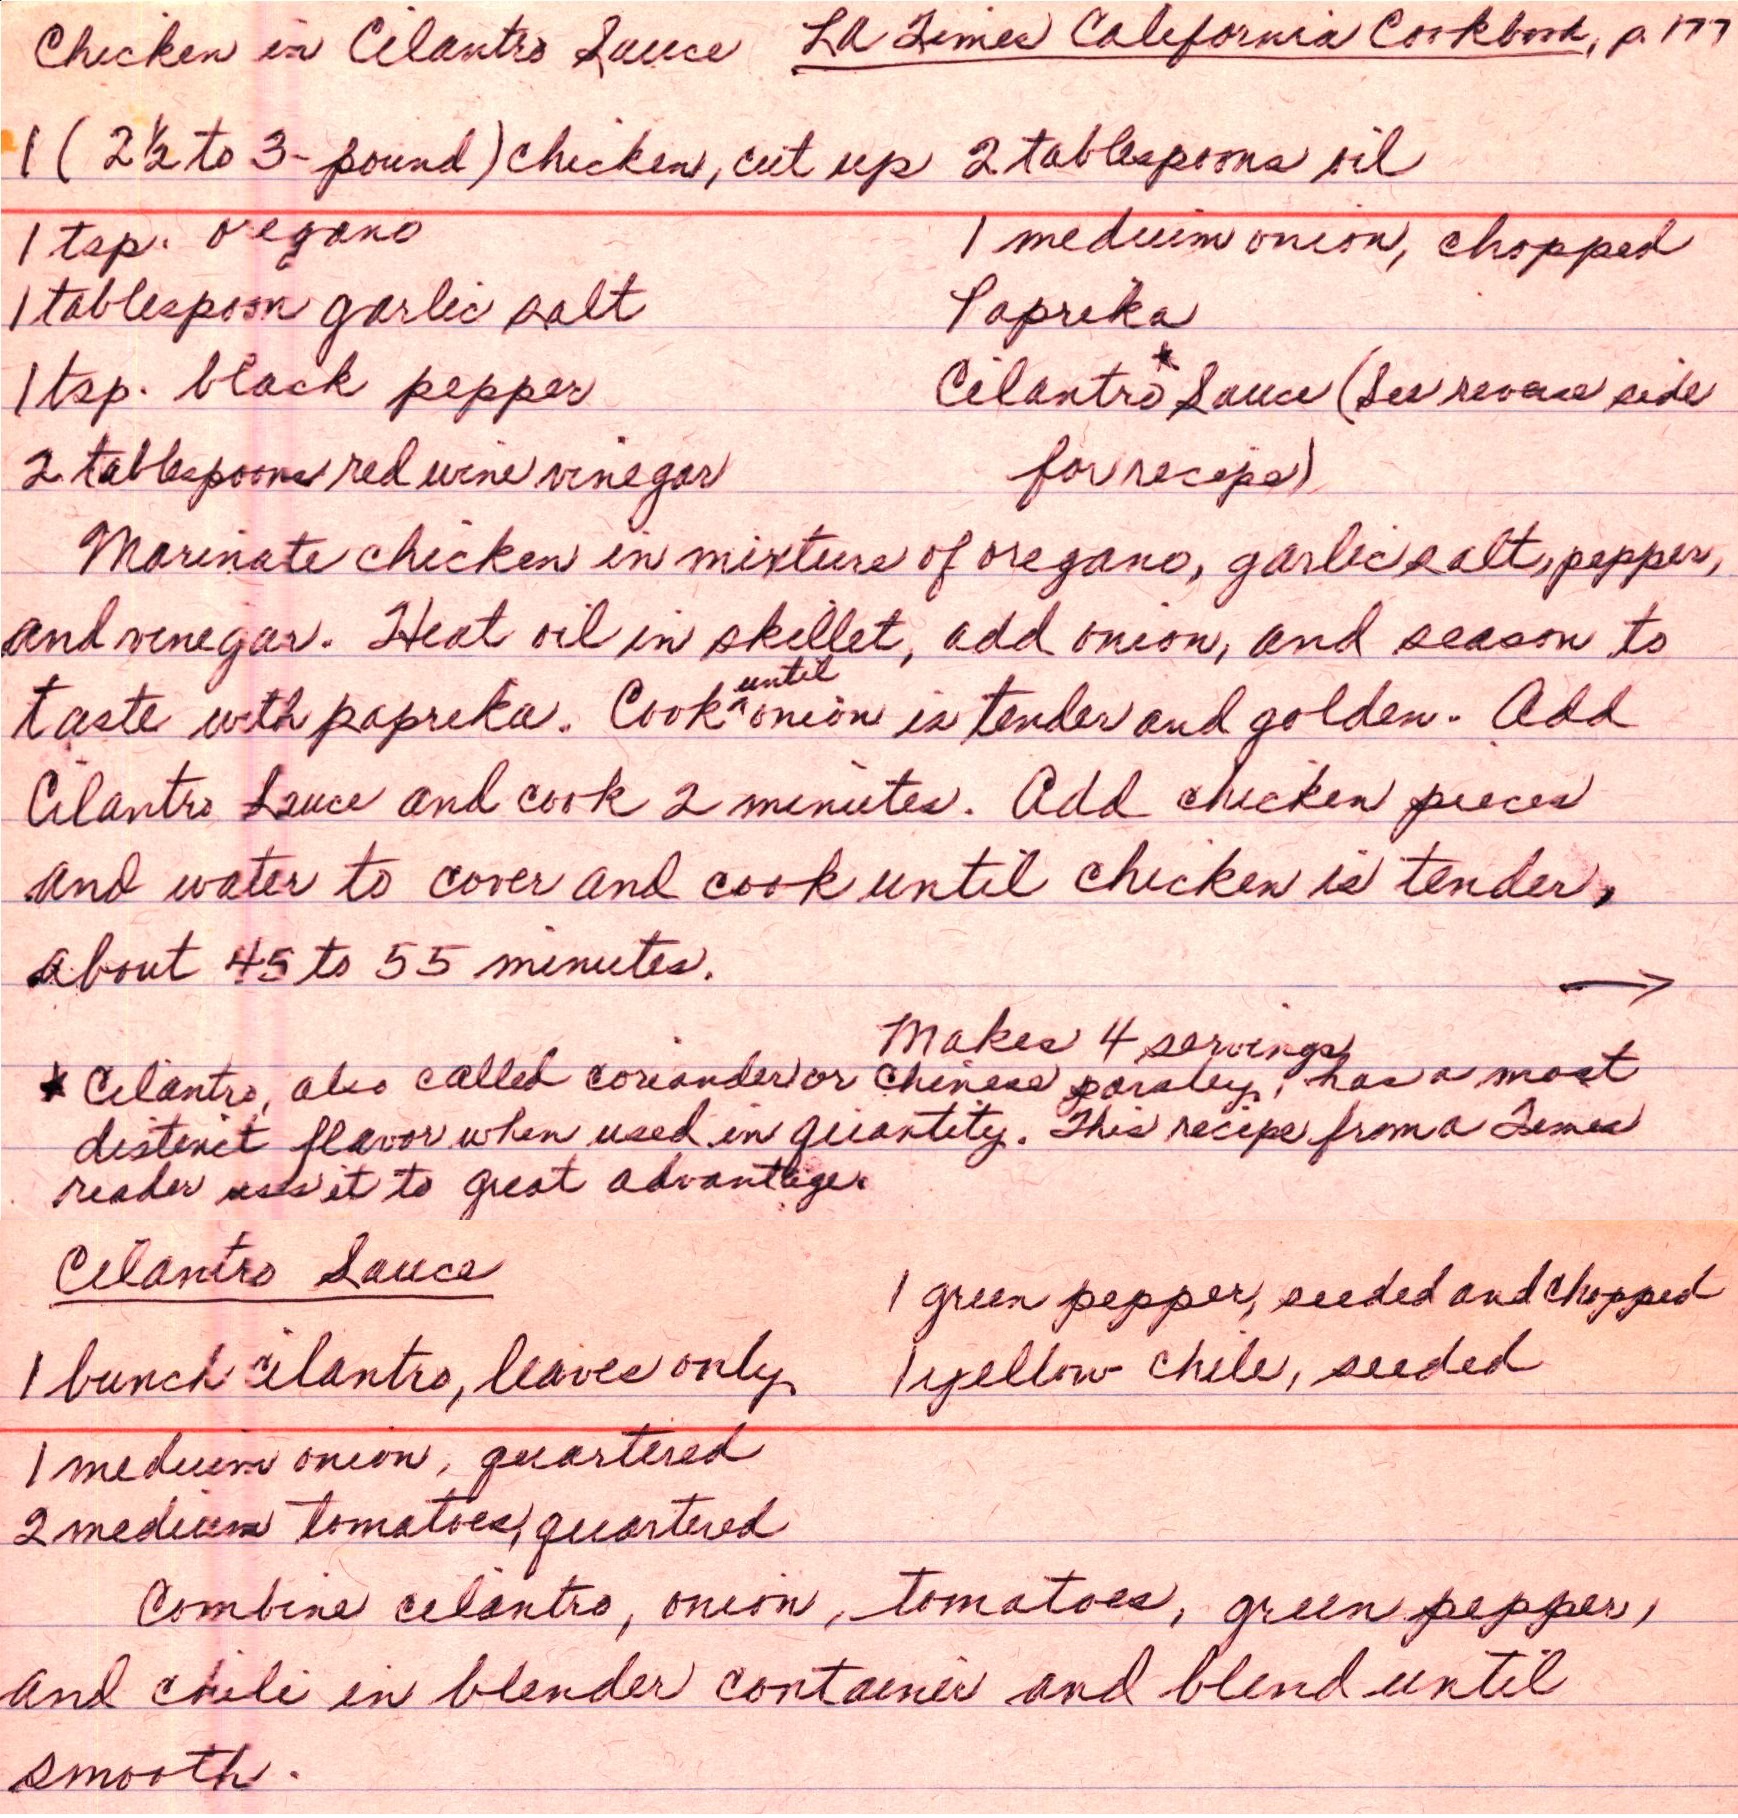 Chicken in Cilantro Sauce LA Times California Cookbook, p. 177
1 (2½ to 3-pound) chicken, cut up
1 tsp. oregano
1 tablespoon garlic salt
1 tsp. black pepper
2 tablespoons red wine vinegar
2 tablespoons oil
1 medium onion, chopped
Paprika
Cilantro* Sauce (See reverse side
for recipe)
Marinate chicken in mixture of oregano, garlic salt, pepper,
and vinegar. Heat oil in skillet, add onion, and season to
taste with paprika. Cook ^until onion is tender and golden. Add
Cilantro Sauce and cook 2 minutes. Add chicken pieces
and water to cover and cook until chicken is tender,
about 45 to 55 minutes. →
Makes 4 servings
* Cilantro, also called coriander or Chinese parsley, has a most
distinct flavor when used in quantity. This recipe from a Times
reader uses it to great advantage.
Cilantro Sauce
1 bunch cilantro, leaves only
1 medium onion, quartered
2 medium tomatoes, quartered
1 green pepper, seeded and chopped
1 yellow chile, seeded
Combine cilantro, onion, tomatoes, green pepper,
and chili in blender container and blend until
smooth.